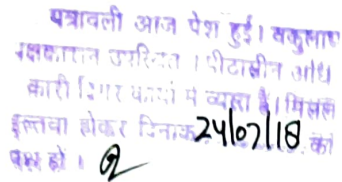 पत्रावली आज पेश हुई। वकुलाय
पक्षकारान उपस्थित। पीठासीन अधि
कारी दिगर कार्यो में व्यस्त है। मिसल
इल्तवा होकर दिनांक 24/07/18 को
पेश हो।